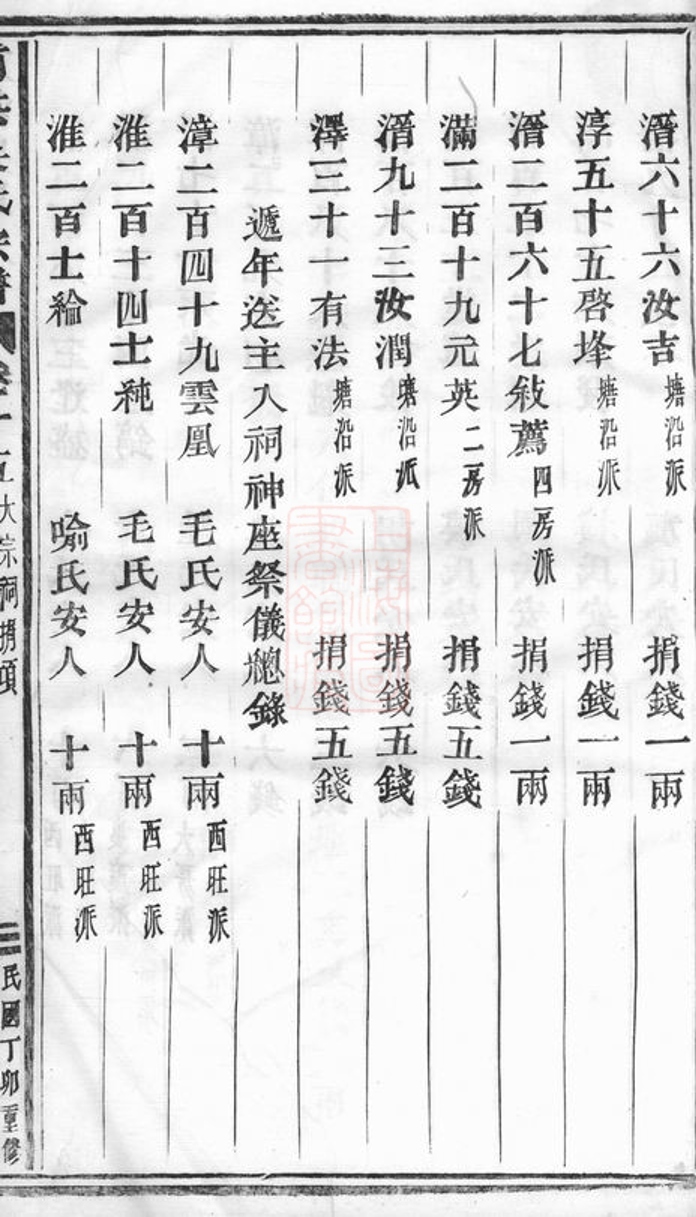 濳六十六汝吉 塘沿派 捐錢一兩
淳五十五啓埄 塘沿派 捐錢一兩
濳二百六十七敍薦 四房派 捐錢一兩
滿二百十九元英 二房派 捐錢五錢
濳九十三汝潤 塘沿派 捐錢五錢
澤三十一有法 塘沿派 捐錢五錢
遞年送主入祠神座祭儀總錄
漳二百四十九雲凰 毛氏安人 十兩 西旺派
淮二百十四士純 毛氏安人 十兩 西旺派
淮二百士綸 喻氏安人 十兩 西旺派
大宗祠捐項
民國丁卯重修